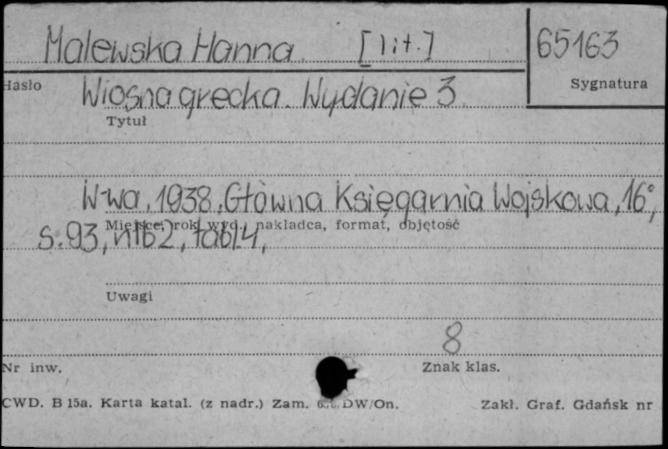 Malewska Hanna. [lit.] 65163
Hasło Sygnatura
Wiosna grecka. Wydanie 3.
Tytuł
W-wa, 1938, Główna Księgarnia Wojskowa, 16°,
Miejsce, rok wyd., nakładca, format, objętość
s. 93, nlb 2, tabl. 4,
Uwagi
8
Nr inw. Znak klas.
CWD. B 15a. Karta katal. (z nadr.) Zam. DW/On. Zakł. Graf. Gdańsk nr